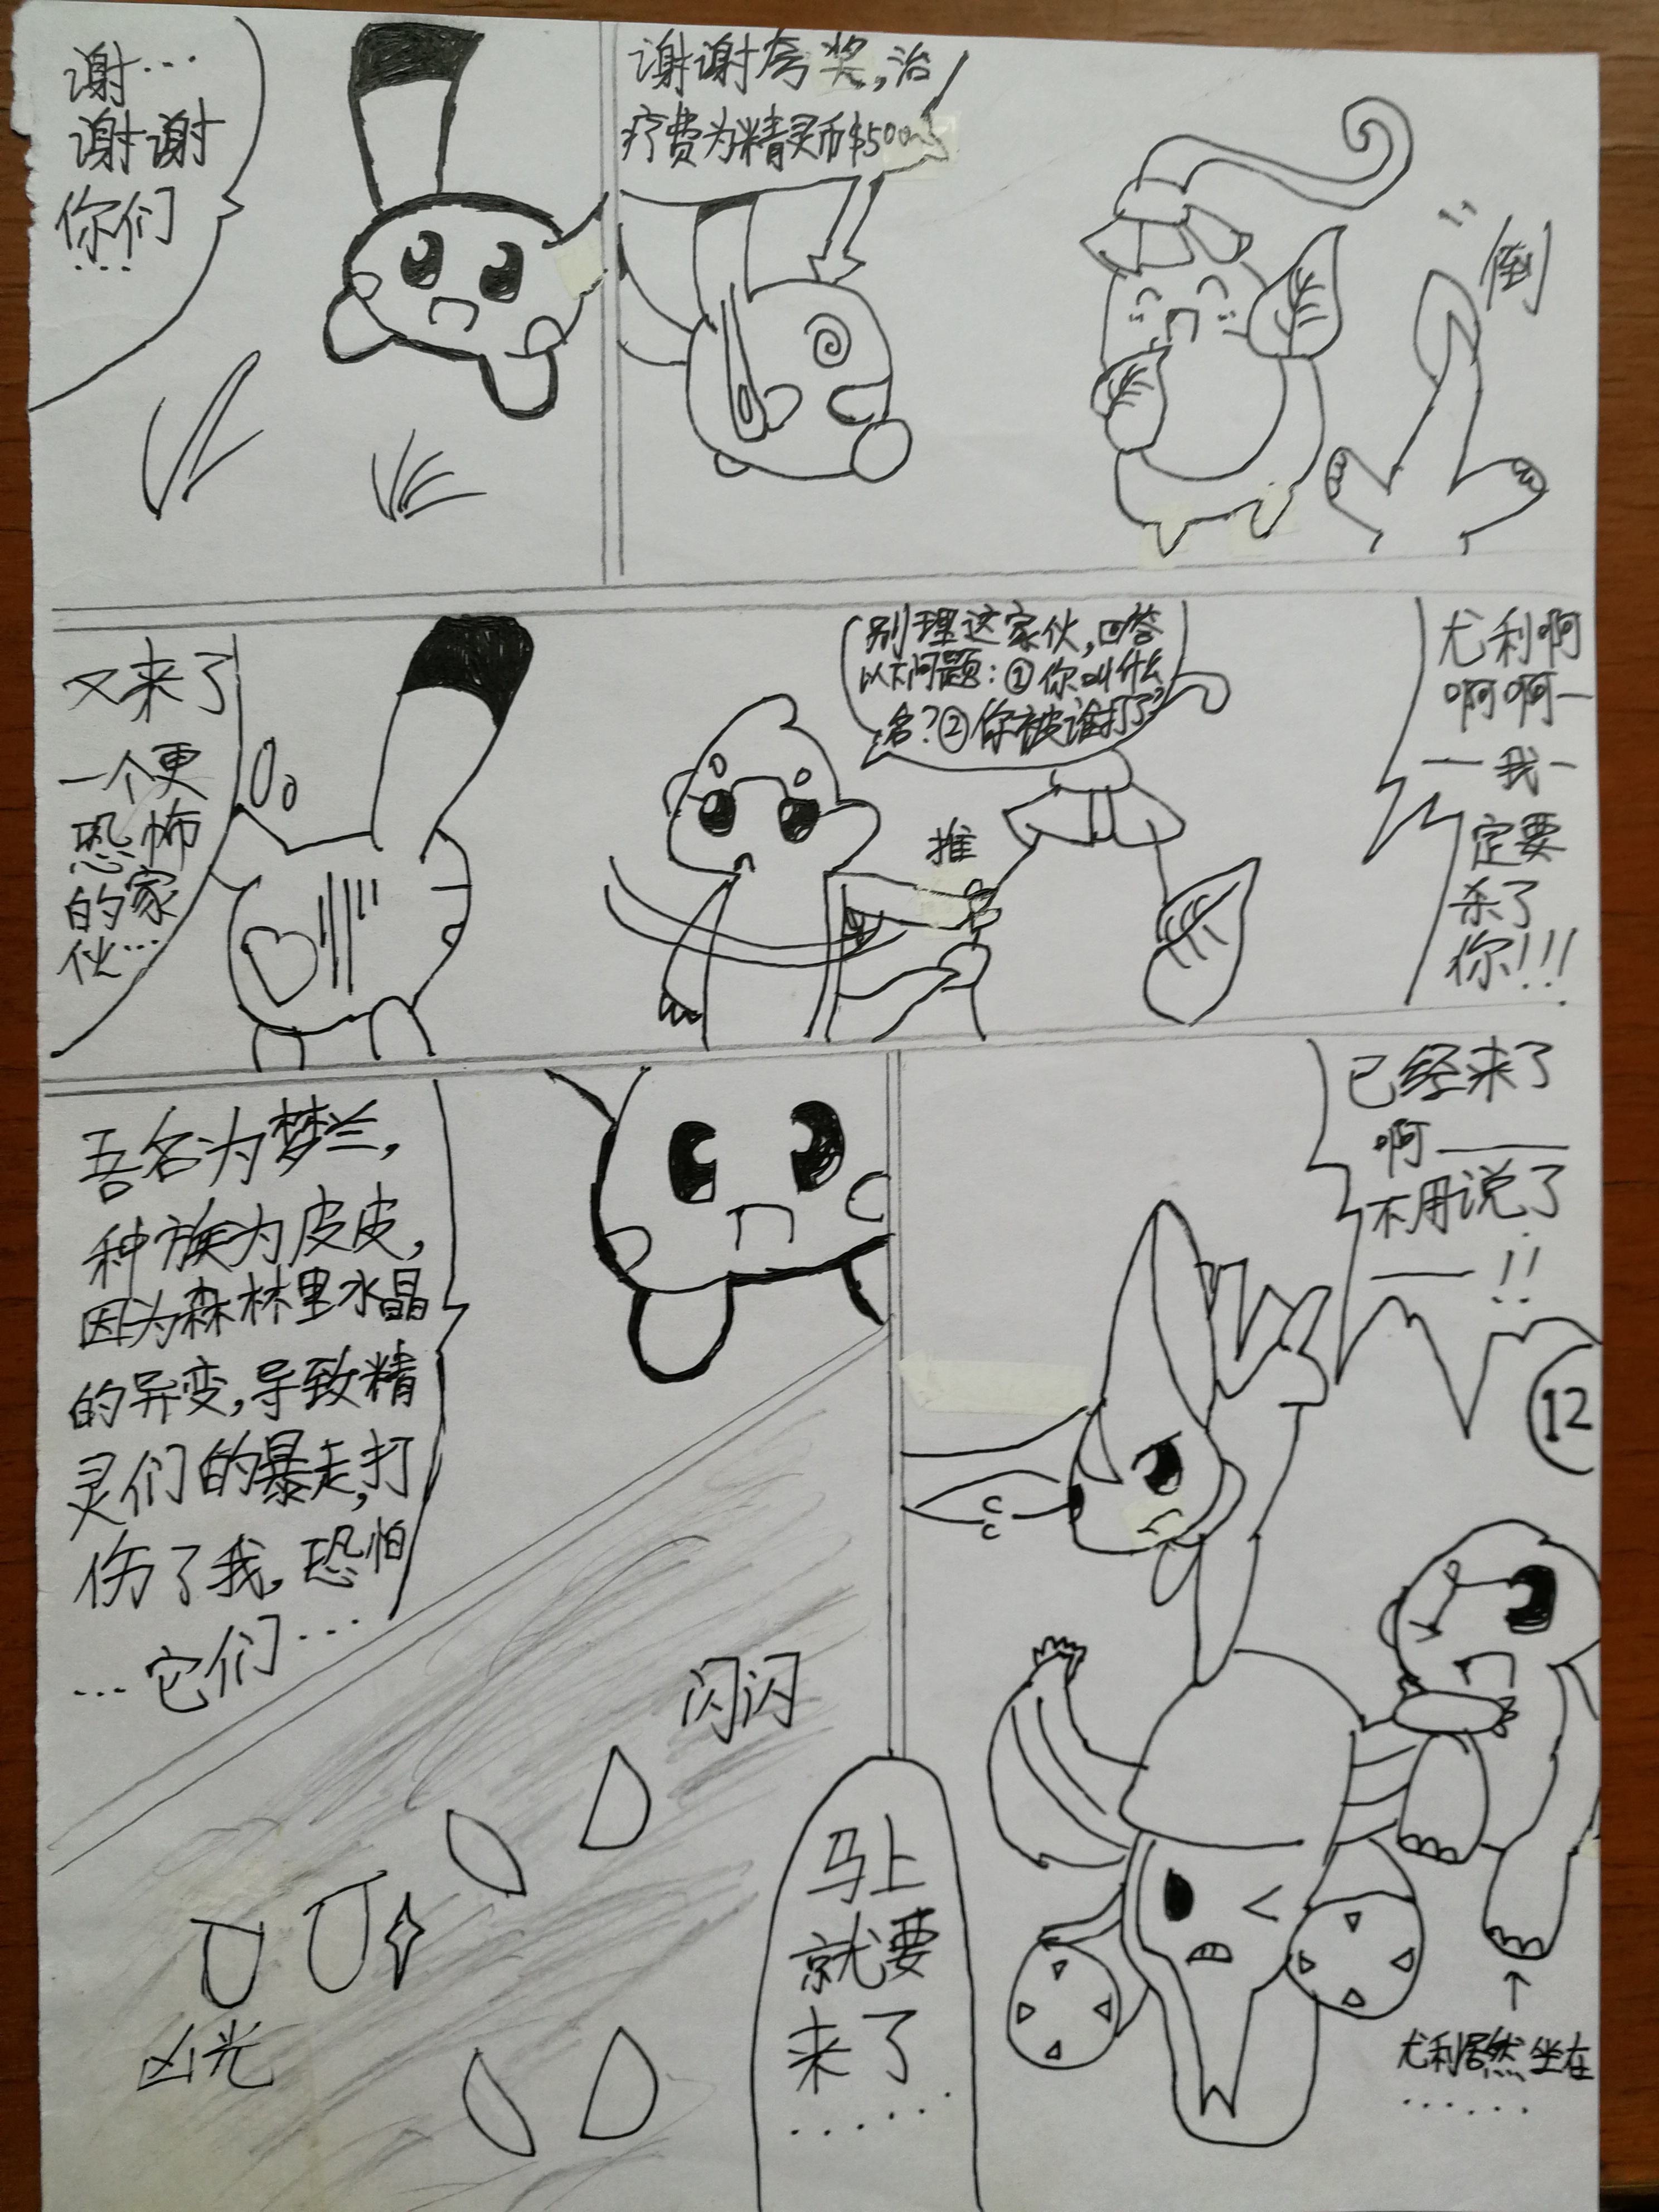 谢…
谢谢
你们
…
谢谢夸奖，治
疗费为精灵币$500
倒
又来了
一个更
恐怖
的家
伙…
别理这家伙，回答
以下问题：①你叫什么
名？②你被谁打了？
推
尤利啊
啊啊一
一我一
定要
杀了
你！！！
吾名为梦兰，
种族为皮皮，
因为森林里水晶
的异变，导致精
灵们的暴走，打
伤了我，恐怕
…它们…
已经来了
啊——
不用说了
——！！
12
闪闪
凶光
马上
就要
来了
……
尤利居然坐在
……